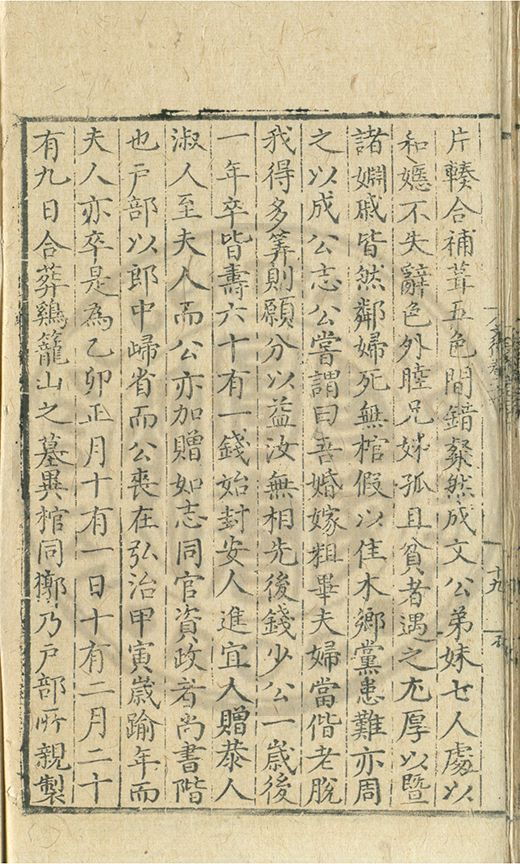 片輳合補葺五色間錯粲然成文公弟妹七人處以
和嫕不失辭色外睦兄姊孤且貧者遇之尤厚以暨
諸婣戚皆然鄰婦死無棺假以佳木鄉黨患難亦周
之以成公志公嘗謂曰吾婚嫁粗畢夫婦當偕老脫
我得多筭則願分以益汝無相先後錢少公一歲後
一年卒皆壽六十有一錢始封安人進宜人贈恭人
淑人至夫人而公亦加贈如志同官資政者尚書階
也戶部以郎中歸省而公喪在弘治甲寅歲踰年而
夫人亦卒是為乙卯正月十有一日十有二月二十
有九日合葬鷄籠山之墓異棺同槨乃戶部所親製
十九